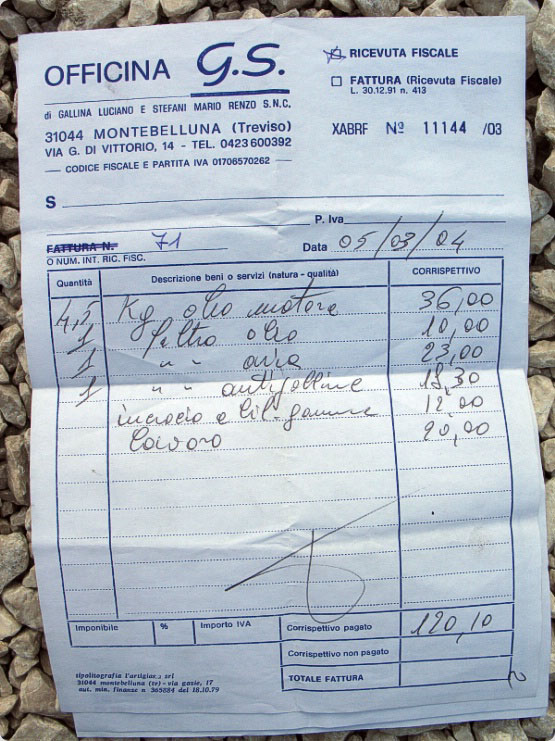 OFFICINA G.S.
di GALLINA LUCIANO E STEFANI MARIO RENZO S.N.C.
31044 MONTEBELLUNA (Treviso)
VIA G. DI VITTORIO, 14 - TEL. 0423 600392
CODICE FISCALE E PARTITA IVA 01706570262
RICEVUTA FISCALE
FATTURA (Ricevuta Fiscale)
L. 30.12.91 n. 413
XABRF Nº 11144 /03
S
P. Iva
FATTURA N. 71
O NUM. INT. RIC. FISC.
Data 05/03/04
Quantità Descrizione beni o servizi (natura - qualità) CORRISPETTIVO
4,5 Kg olio motore 36,00
1 filtro olio 10,00
1 " " aria 23,00
1 " " antipolline
incrocio e 12,00
lavoro 20,00
Imponibile % Importo IVA Corrispettivo pagato 120,10
Corrispettivo non pagato
TOTALE FATTURA
tipolitografia l'artigiana srl
31044 montebelluna (tv) - via gazie, 17
aut. min. finanze n 365884 del 18.10.79